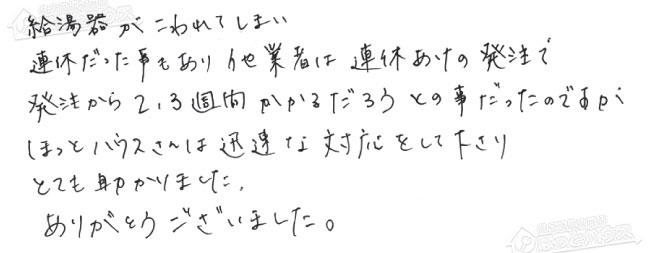 給湯器がこわれてしまい
連休だった事もあり他業者は連休あけの発注で
発注から2,3週間かかるだろうとの事だったのですが
ほっとハウスさんは迅速な対応をして下さり
とても助かりました。
ありがとうございました。